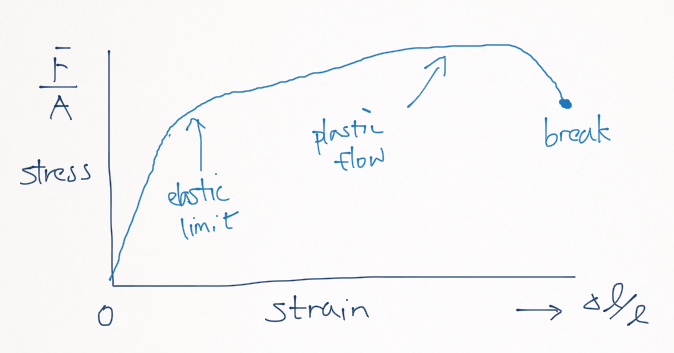 F̄
A
stress
elastic
limit
plastic
flow
break
0
strain
→ Δl/l